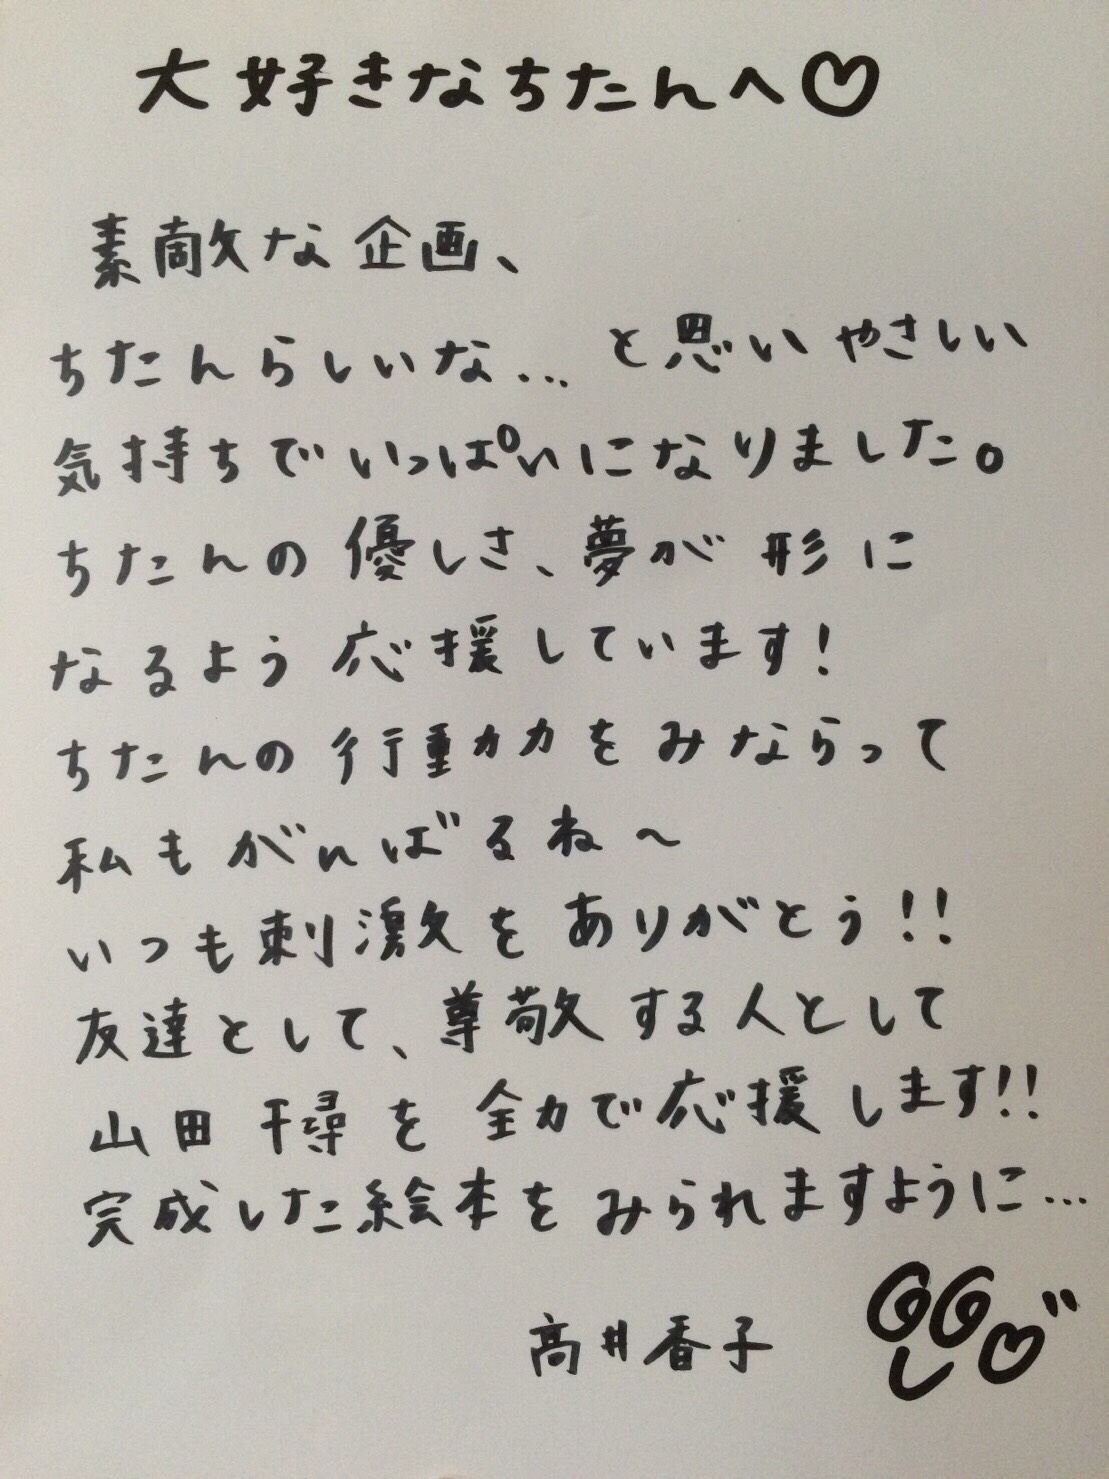 大好きなちたんへ♡
素敵な企画、
ちたんらしいな...と思いやさしい
気持ちでいっぱいになりました。
ちたんの優しさ、夢が形に
なるよう応援しています!
ちたんの行動力をみならって
私もがんばるね〜
いつも刺激をありがとう!!
友達として、尊敬する人として
山田千尋を全力で応援します!!
完成した絵本をみられますように...
高井香子